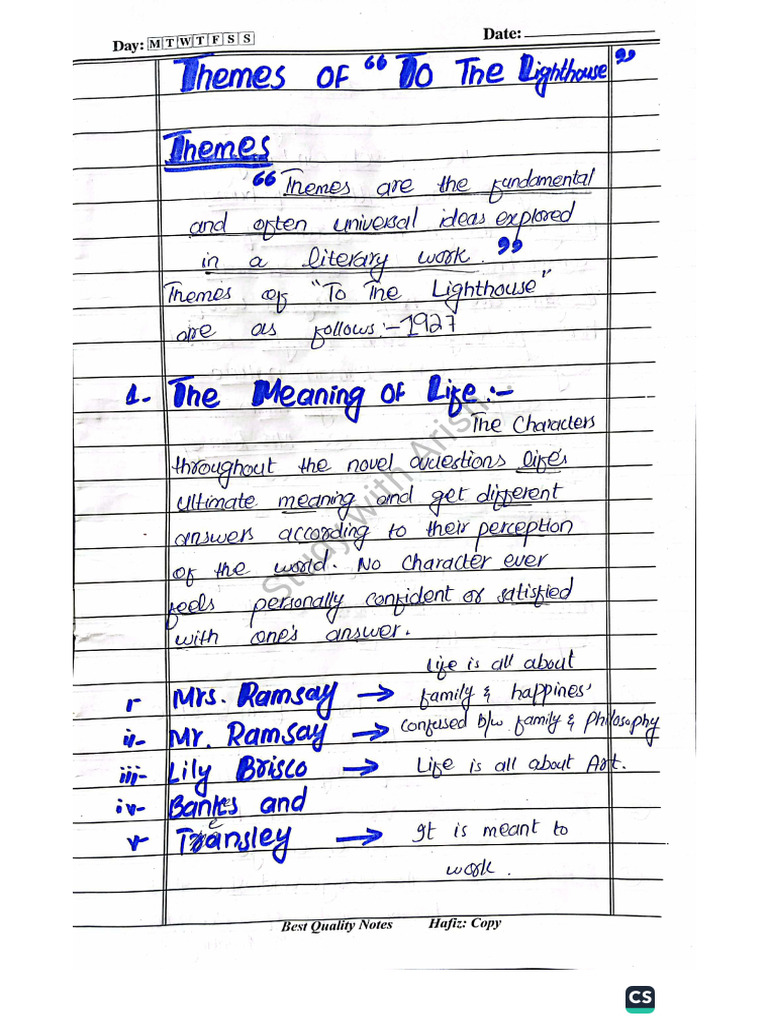 Day: M T W T F S S
Date:
Themes of "To The Lighthouse"
Themes
"Themes are the fundamental
and often universal ideas explored
in a literary work."
Themes of "To The Lighthouse"
are as follows:- 1927
1- The Meaning of Life:-
The Characters
throughout the novel questions life's
ultimate meaning and get different
answers according to their perception
of the world. No character ever
feels personally confident or satisfied
with one's answer.
Life is all about
i- Mrs. Ramsay → family & happines'
ii- Mr. Ramsay → confused b/w family & Philosophy
iii- Lily Brisco → Life is all about Art.
iv- Bankes and
v Transley → It is meant to
work.
Study with Arish...
Best Quality Notes Hafiz: Copy
CS